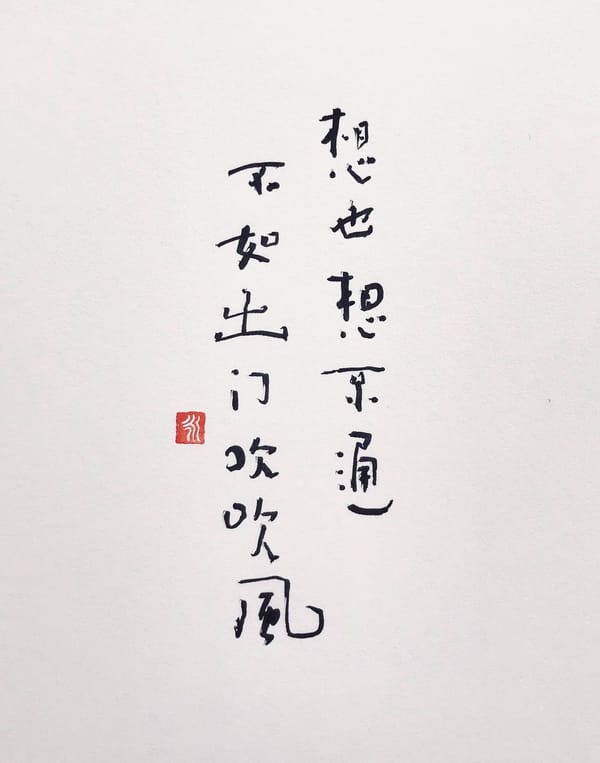 想也想不通
不如出门吹吹風